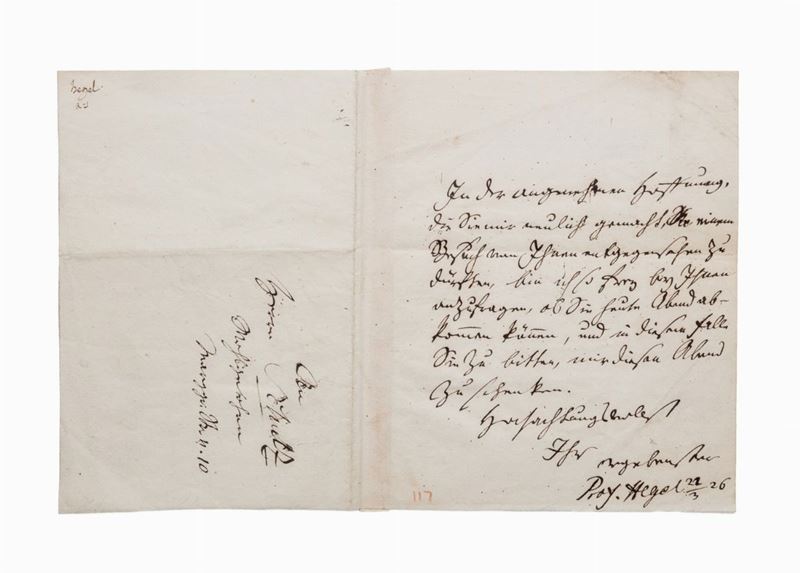 Hegel
In der angenehmen Hoffnung,
die Sie mir neulich gemacht, einem
Besuch von Ihnen entgegensehen zu
dürfen, bin ich so frey bey Ihnen
anzufragen, ob Sie heute Abend ab-
kommen können, und in diesem Falle
Sie zu bitten, mir diesen Abend
zu schenken.
Hochachtungsvollst
Ihr ergebenster
Prof. Hegel 22/3 26
An
Herrn Schultz
10
117